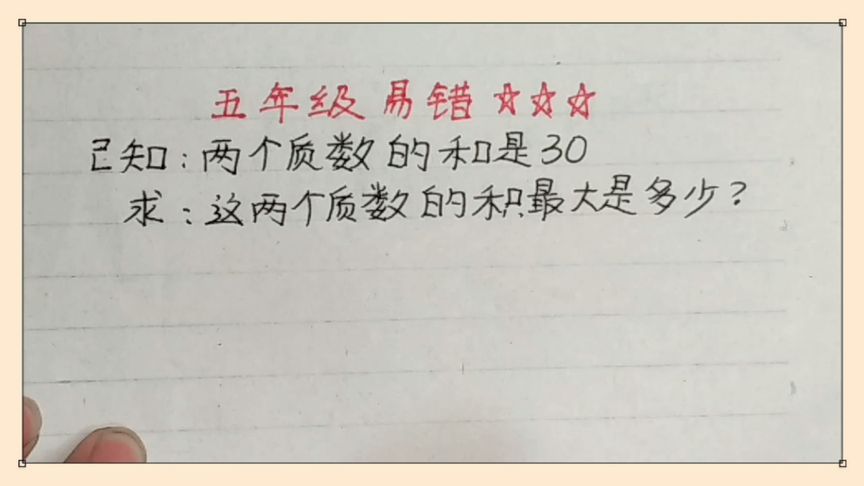 五年级易错☆☆☆
已知：两个质数的和是30
求：这两个质数的积最大是多少？